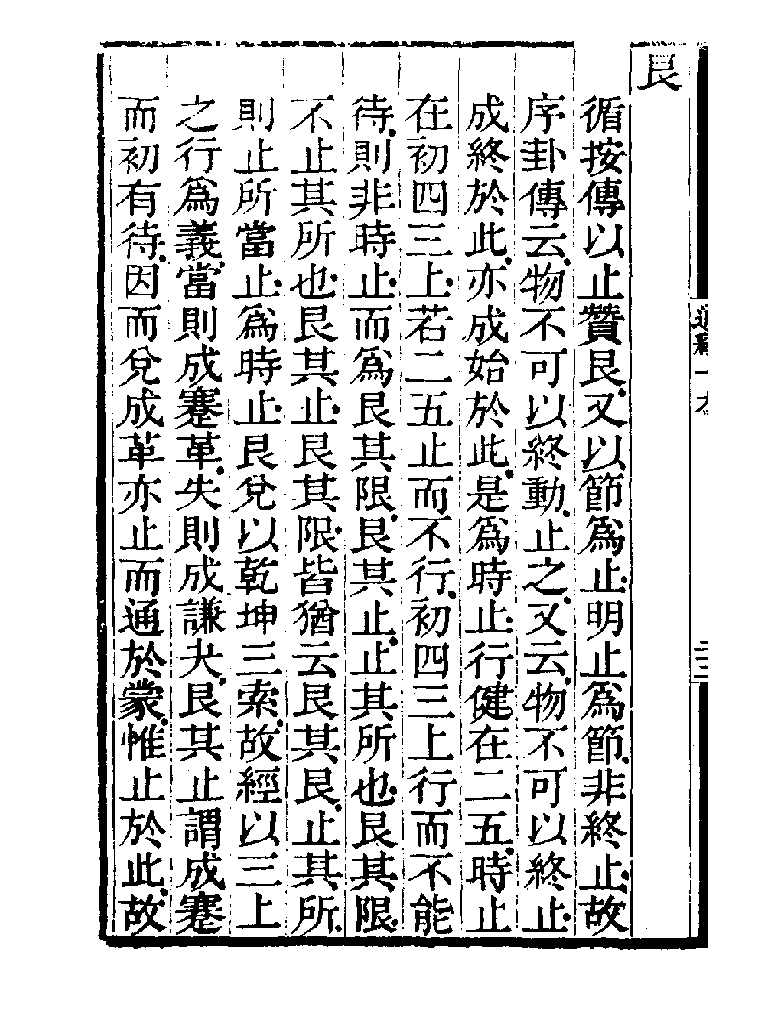 艮
循按傳以止贊艮又以節爲止明止爲節非終止故
序卦傳云物不可以終動止之又云物不可以終止
成終於此亦成始於此是爲時止行健在二五時止
在初四三上若二五止而不行初四三上行而不能
待則非時止而爲艮其限艮其止止其所也艮其限
不止其所也艮其止艮其限皆猶云艮其艮止其所
則止所當止爲時止艮兌以乾坤三索故經以三上
之行爲義當則成蹇革失則成謙夬艮其止謂成蹇
而初有待因而兌成革亦止而通於蒙惟止於此故